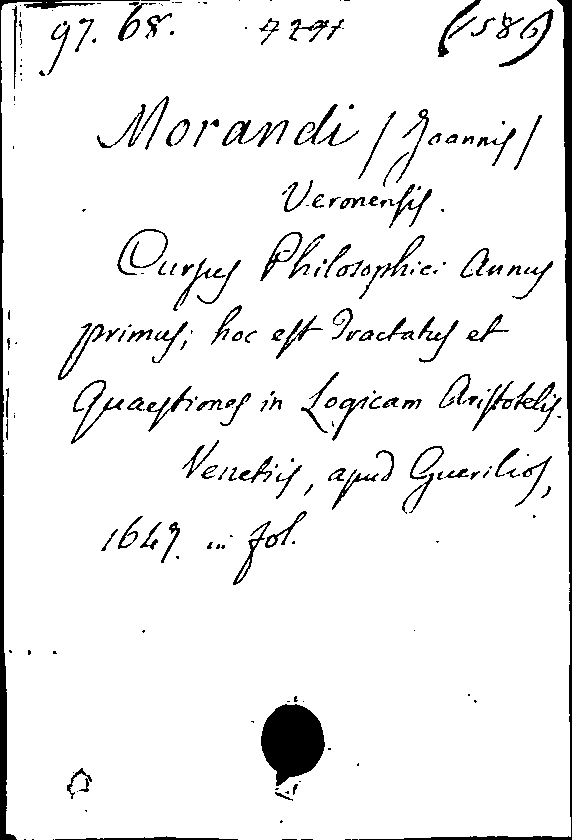 97. 68. 7291 (1586)
Morandi / Joannis /
Veronensis.
Cursus Philosophici Annus
primus; hoc est Tractatus et
Quaestiones in Logicam Aristotelis.
Venetiis, apud Guerilios,
1647. in fol.